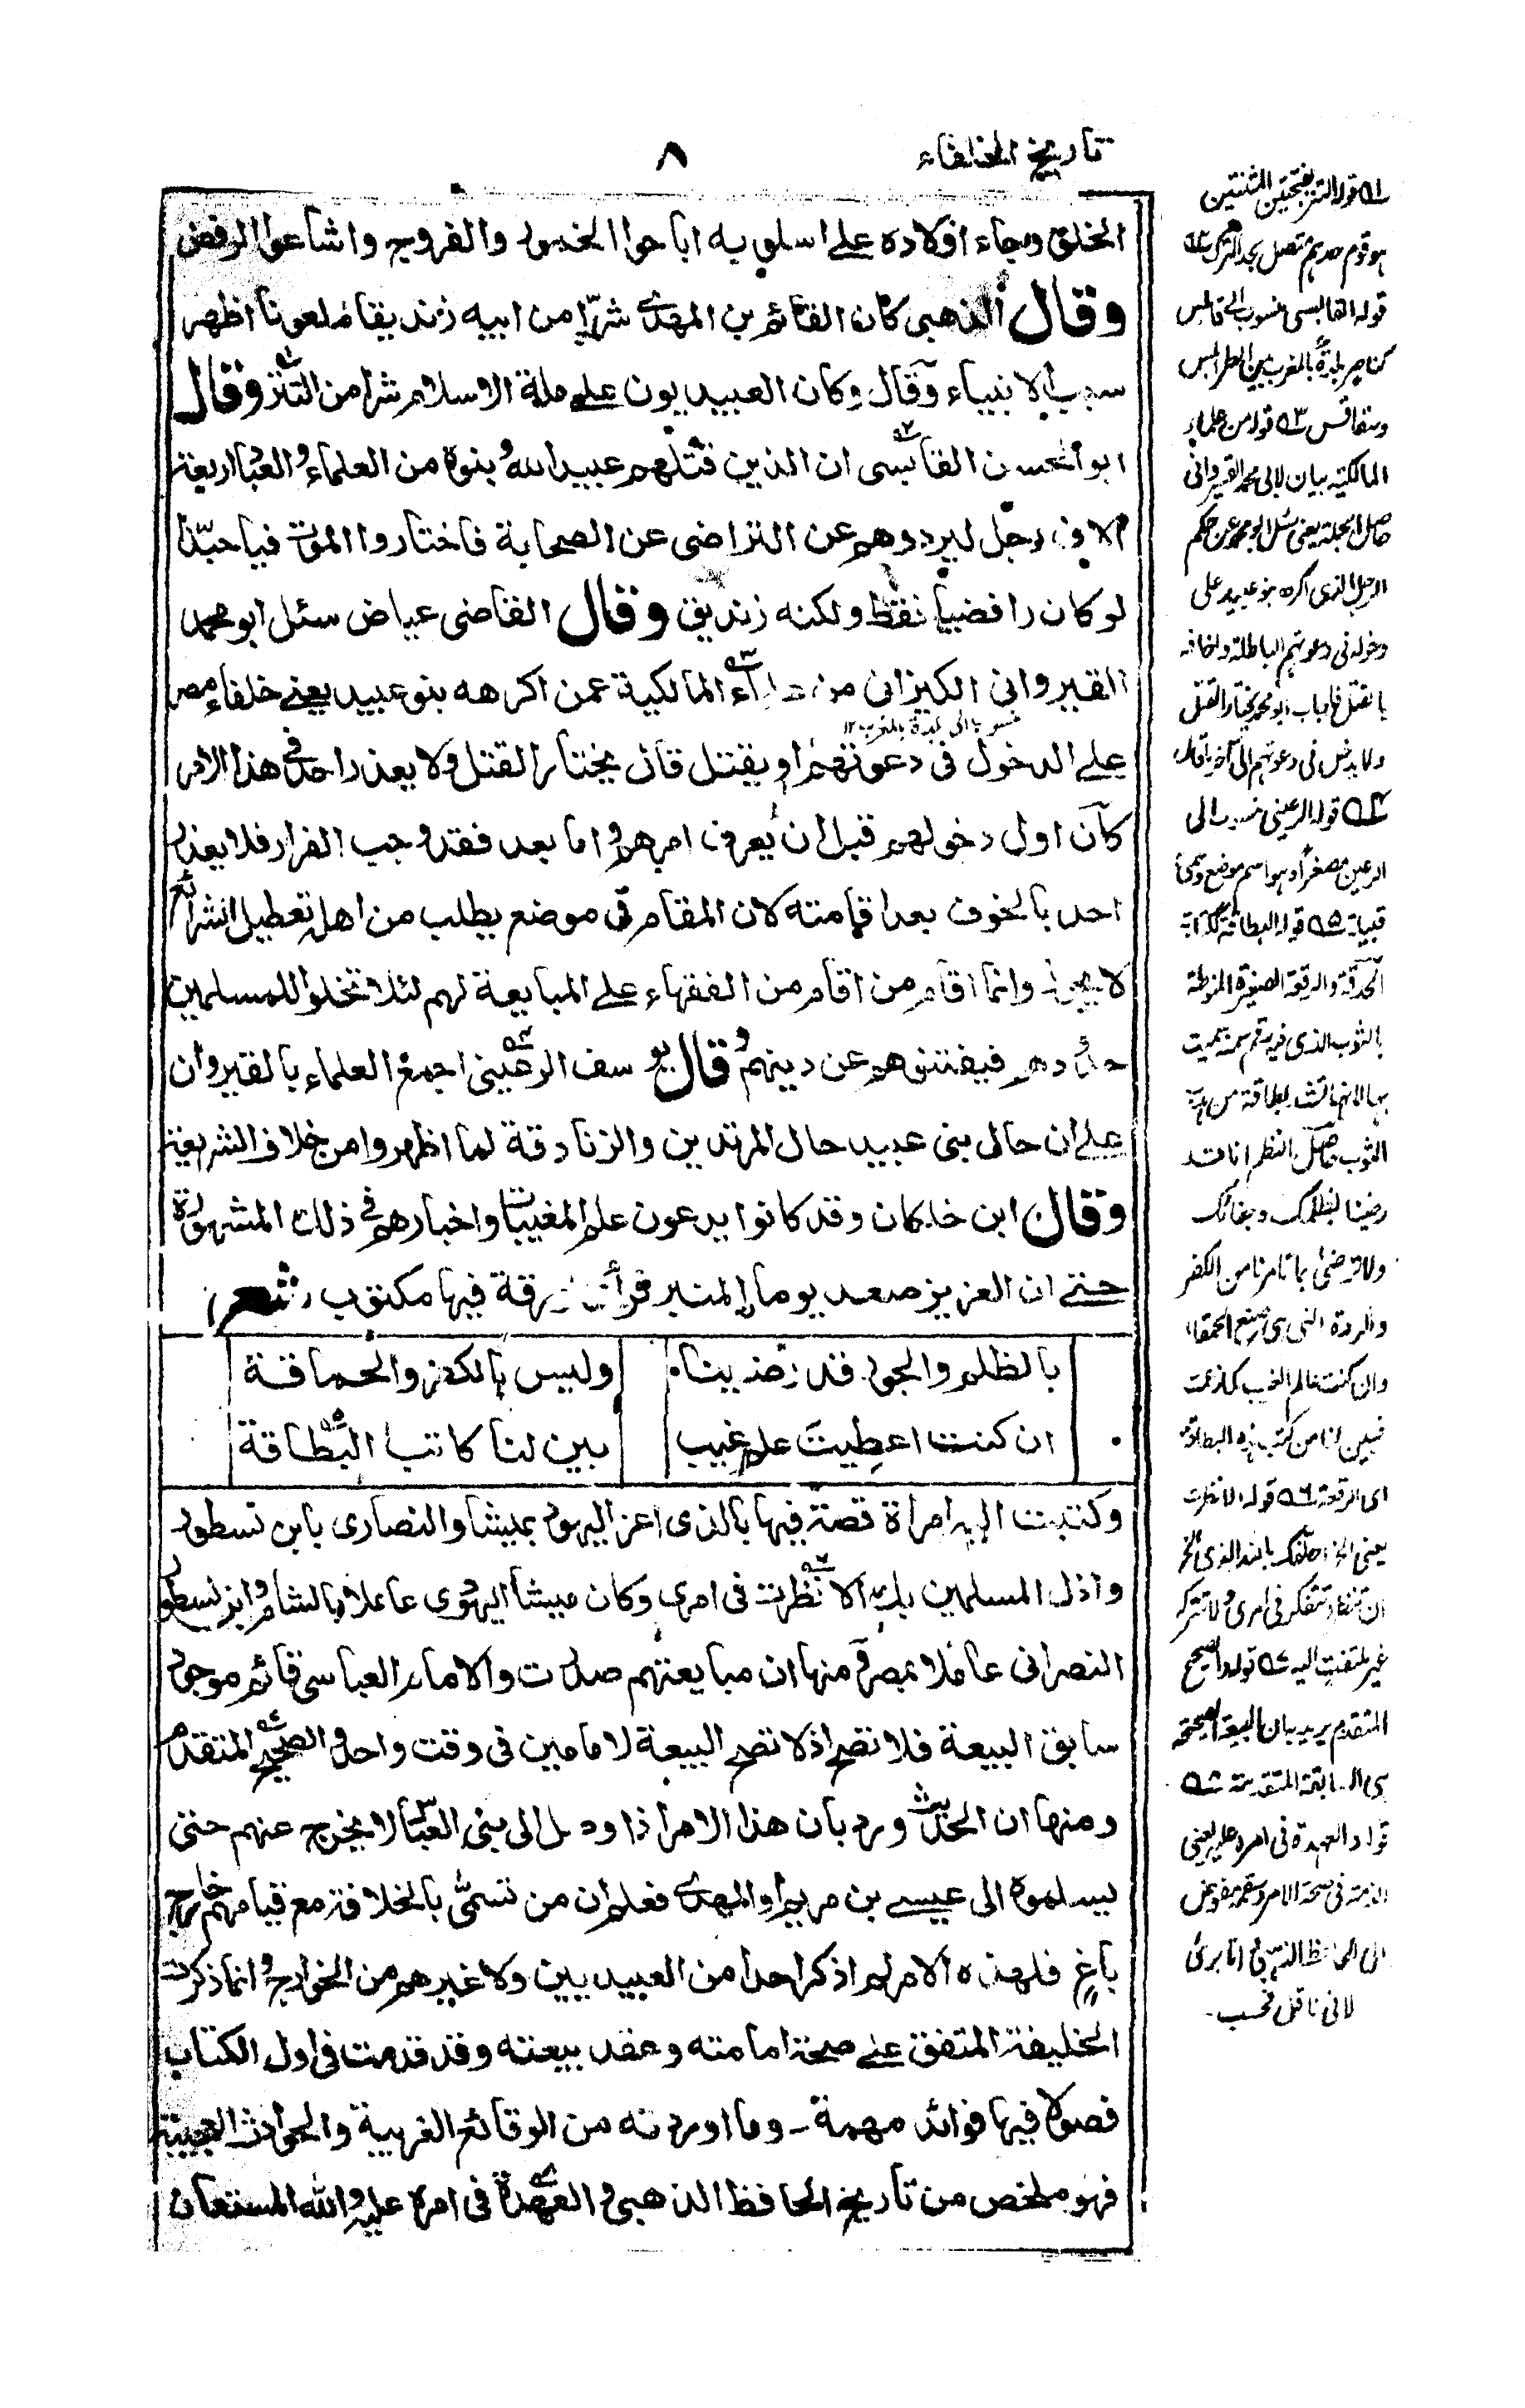 تاريخ الخلفاء
٨
الخلق وجاء اولاده على اسلوبه اباحوا الخمور والفروج واشاعوا الرفض
وقال الذهبي كان القائم بن المهدى شرّا من ابيه زنديقا ملعونا اظهر
سب الانبياء وقال وكان العبيديون على ملة الاسلام شرا من التتر وقال
ابو الحسن القابسى ان الذين قتلهم عبيد الله وبنوه من العلماء والعباد اربعة
الاف رجل ليردوهم عن التراضى عن الصحابة فاختاروا الموت فيا حبذا
لو كان رافضيا فقط ولكنه زنديق وقال القاضى عياض سئل ابو محمد
القيروانى الكيزانى من علماء المالكية عمن اكرهه بنو عبيد يعنے خلفاء مصر
منسوب الى بلدة بالمغرب ١٢
علے الدخول فى دعوتهم او يقتل قال يختار القتل ولا يعذر احد فى هذا الامر
كان اول دخولهم قبل ان يعرف امرهم واما بعد فقد وجب الفرار فلا يعذر
احد بالخوف بعد اقامته لان المقام فى موضع يطلب من اهله تعطيل الشرائع
لا يجوز وانما اقام من اقام من الفقهاء علے المبايعة لهم لئلا تخلو للمسلمين
حدودهم فيفتنوهم عن دينهم وقال يوسف الرعينى اجمع العلماء بالقيروان
علے ان حال بنى عبيد حال المرتدين والزنادقة لما اظهروا من خلاف الشريعة
وقال ابن خلكان وقد كانوا يدعون علم المغيبات واخبارهم فى ذلك المشهورة
حتے ان العزيز صعد يوما المنبر فرأى ورقة فيها مكتوب شعر
بالظلم والجور قد رضينا وليس بالكفر والحماقة
ان كنت اعطيت علم غيب بين لنا كاتب البطاقة
وكتبت اليه امراة قصة فيها بالذى اعز اليهود بميشا والنصارى بابن نسطور
واذل المسلمين بك الا نظرت فى امرى وكان ميشا اليهودى عاملا بالشام وابن نسطور
النصرانى عاملا بمصر ومنها ان مبايعتهم صدرت والامام العباسى قائم موجود
سابق البيعة فلا تصح اذ لا تصح البيعة لامامين فى وقت واحد والصحيح المتقدم
ومنها ان الحديث ورد بان هذا الامر اذا وصل الى بنى العباس لا يخرج عنهم حتى
يسلموه الى عيسے بن مريم او المهدى فعلم ان من تسمّى بالخلافة مع قيامهم خارج
باغ فلهذه الامور لم اذكر احدا من العبيديين ولا غيرهم من الخوارج وانما ذكرت
الخليفة المتفق علے صحة امامته وعقد بيعته وقد قدمت فى اول الكتاب
فصولا فيها فوائد مهمة - وما اوردته من الوقائع الغريبة والحوادث العجيبة
فهو ملخص من تاريخ الحافظ الذهبى والعهدة فى امره عليه والله المستعان
قوله التتر بفتحتين المثنتين
قوله القابسى منسوب الى قابس
كناصر بلدة بالمغرب بين اطرابلس
وسفاقس قوله من علماء
المالكية بيان لابى محمد القيروانى
حاصل الجملة يعنى سئل ابو محمد عن حكم
الرجل الذى اكره بنو عبيد على
دخوله فى دعوتهم الباطلة
ولا يدخل فى دعوتهم الى آخر ما قال
قوله الرعينى منسوب الى
الرعين مصغرا وهو اسم موضع
والرقعة الصغيرة المنوطة
بالثوب الذى فيه رقم
الثوب حاصل النظم انا قد
رضينا بظلمك وجفائك
ولا نرضى بما تامرنا من الكفر
وان كنت عالم الغيب كما زعمت
فبين لنا من كتب هذه البطاقة
اى الرقعة قوله الا نظرت
ان تنظر وتتفكر فى امرى ولا تترك
غير ملتفت اليه قوله والصحيح
المتقدم يريد بيان البيعة الصحيحة
هى السابقة المتقدمة
قوله والعهدة فى امره عليه يعنى
الى الحافظ الذهبى وانا برئ
لانى ناقل فحسب -